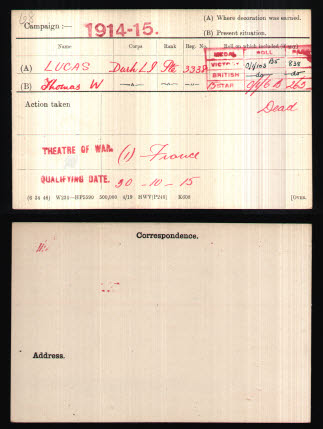 Campaign :— 1914-15.
(A) Where decoration was earned.
(B) Present situation.
Name Corps Rank Reg. No. Roll on which included (if any)
MEDAL ROLL
(A) LUCAS Durh L I Pte 3338
VICTORY 838
BRITISH do do
(B) Thomas W
STAR
Action taken
Dead
THEATRE OF WAR. (1) France
QUALIFYING DATE. 30-10-15
(6 34 46) W234—HP5590 500,000 4/19 HWV(P240) K608 [OVER.
Correspondence.
Address.